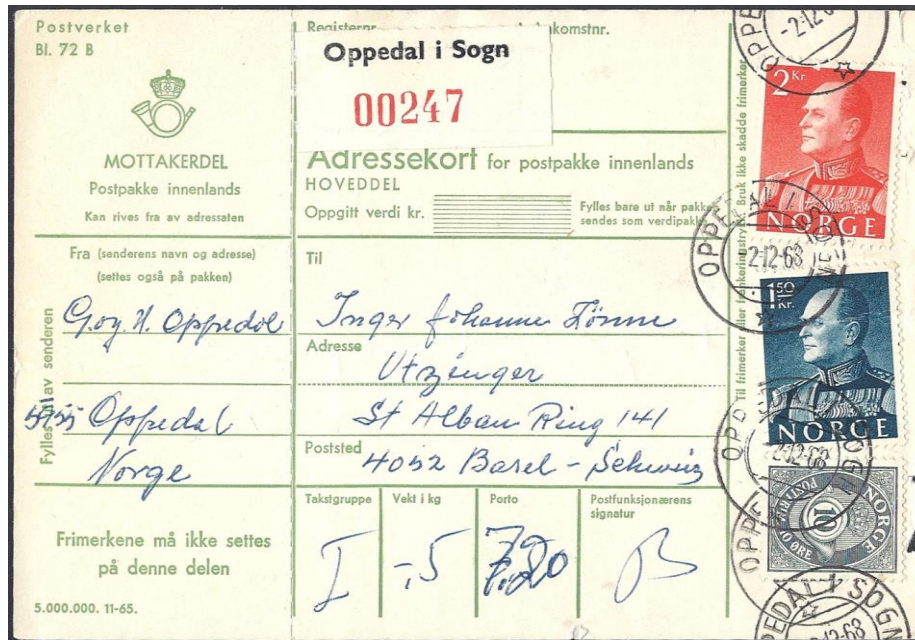 Postverket
Bl. 72 B
MOTTAKERDEL
Postpakke innenlands
Kan rives fra av adressaten
Fra (senderens navn og adresse)
(settes også på pakken)
G. og H. Oppedal
Oppedal
Norge
Fylles ut av senderen
Frimerkene må ikke settes
på denne delen
5.000.000. 11-65.
Registernr.
komstnr.
Oppedal i Sogn
00247
Adressekort for postpakke innenlands
HOVEDDEL
Oppgitt verdi kr.
Fylles bare ut når pakke
sendes som verdipakk
Til
Inger Johanne Tönne
Adresse
Utzinger
St Alban Ring 141
Poststed
4052 Basel - Schweiz
Takstgruppe
Vekt i kg
Porto
Postfunksjonærens
signatur
I
-,5
7.20
Til frimerker eller frankeringstrykk. Bruk ikke skadde frimerker
OPPE
-2.12.6
2 Kr.
NORGE
OPPEDAL I SOGN
2.12.68
1 50 Kr.
NORGE
OPPEDAL I SOGN
2.12.68
POSTFRIM
10
10 ØRE
NORGE
OPPE
PEDAL I SOGN
12-68